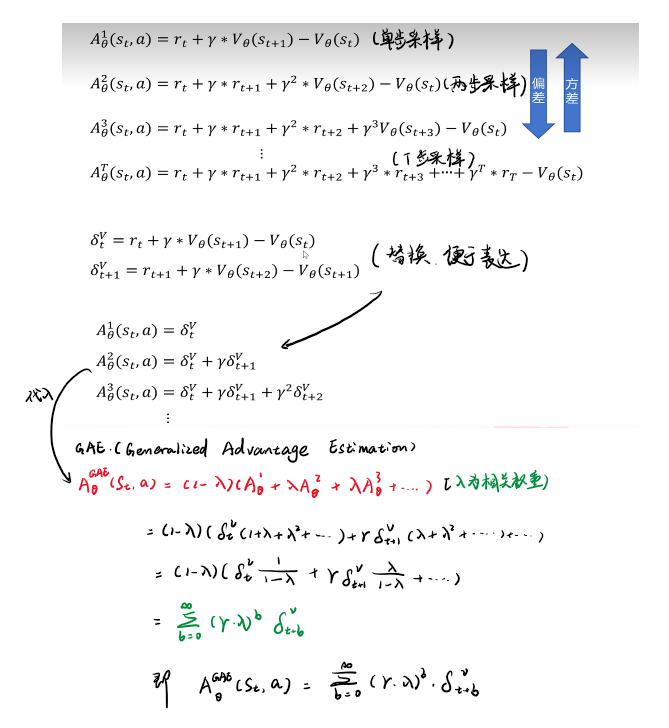 A_θ^1(s_t, a) = r_t + γ * V_θ(s_{t+1}) − V_θ(s_t) (单步采样)
A_θ^2(s_t, a) = r_t + γ * r_{t+1} + γ^2 * V_θ(s_{t+2}) − V_θ(s_t) (两步采样)
偏差
方差
A_θ^3(s_t, a) = r_t + γ * r_{t+1} + γ^2 * r_{t+2} + γ^3 V_θ(s_{t+3}) − V_θ(s_t)
⋮
(T步采样)
A_θ^T(s_t, a) = r_t + γ * r_{t+1} + γ^2 * r_{t+2} + γ^3 * r_{t+3} + ⋯ + γ^T * r_T − V_θ(s_t)
δ_t^V = r_t + γ * V_θ(s_{t+1}) − V_θ(s_t)
δ_{t+1}^V = r_{t+1} + γ * V_θ(s_{t+2}) − V_θ(s_{t+1})
(替换. 便于表达)
A_θ^1(s_t, a) = δ_t^V
A_θ^2(s_t, a) = δ_t^V + γδ_{t+1}^V
代入
A_θ^3(s_t, a) = δ_t^V + γδ_{t+1}^V + γ^2δ_{t+2}^V
⋮
GAE.(Generalized Advantage Estimation)
A_θ^{GAE}(S_t, a) = (1-λ)(A_θ^1 + λA_θ^2 + λA_θ^3 + ....) [λ为相关权重)
= (1-λ)(δ_t^V(1+λ+λ^2+...)+γδ_{t+1}^V(λ+λ^2+.....)+...)
= (1-λ)(δ_t^V \frac{1}{1-λ} + γδ_{t+1}^V \frac{λ}{1-λ} + ....)
= \sum_{b=0}^{∞} (γ·λ)^b δ_{t+b}^V
即 A_θ^{GAE}(S_t, a) = \sum_{b=0}^{∞} (γ·λ)^b · δ_{t+b}^V